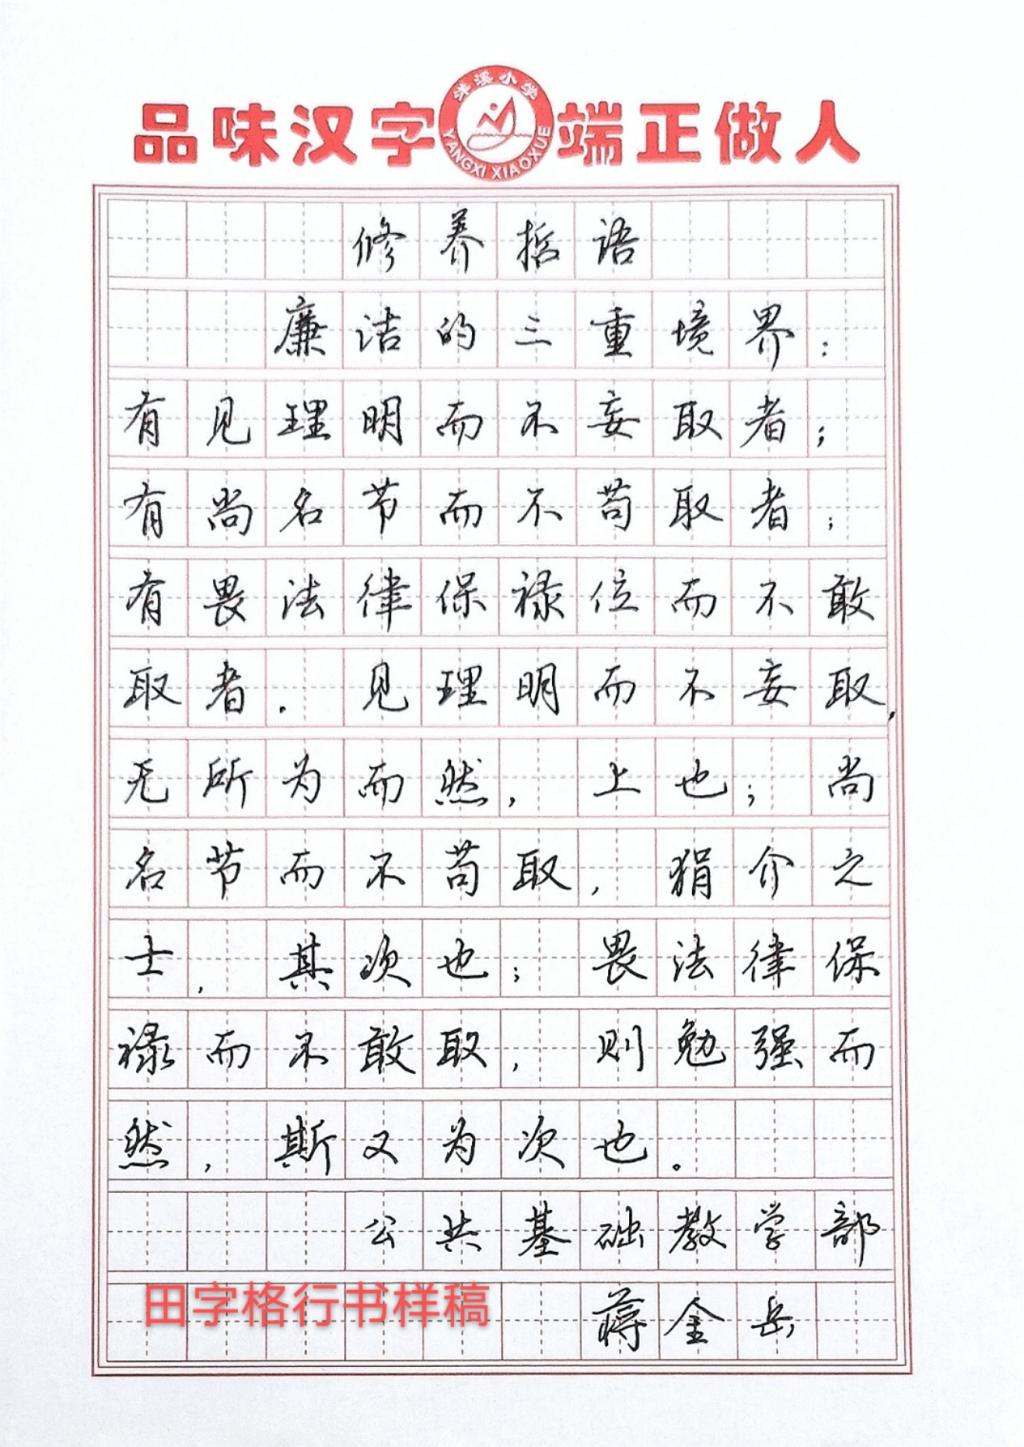 品味汉字 端正做人
洋溪小学
YANGXI XIAOXUE
修养哲语
廉洁的三重境界：
有见理明而不妄取者；
有尚名节而不苟取者；
有畏法律保禄位而不敢
取者。见理明而不妄取，
无所为而然，上也；尚
名节而不苟取，狷介之
士，其次也；畏法律保
禄而不敢取，则勉强而
然，斯又为次也。
公共基础教学部
田字格行书样稿
蒋金岳